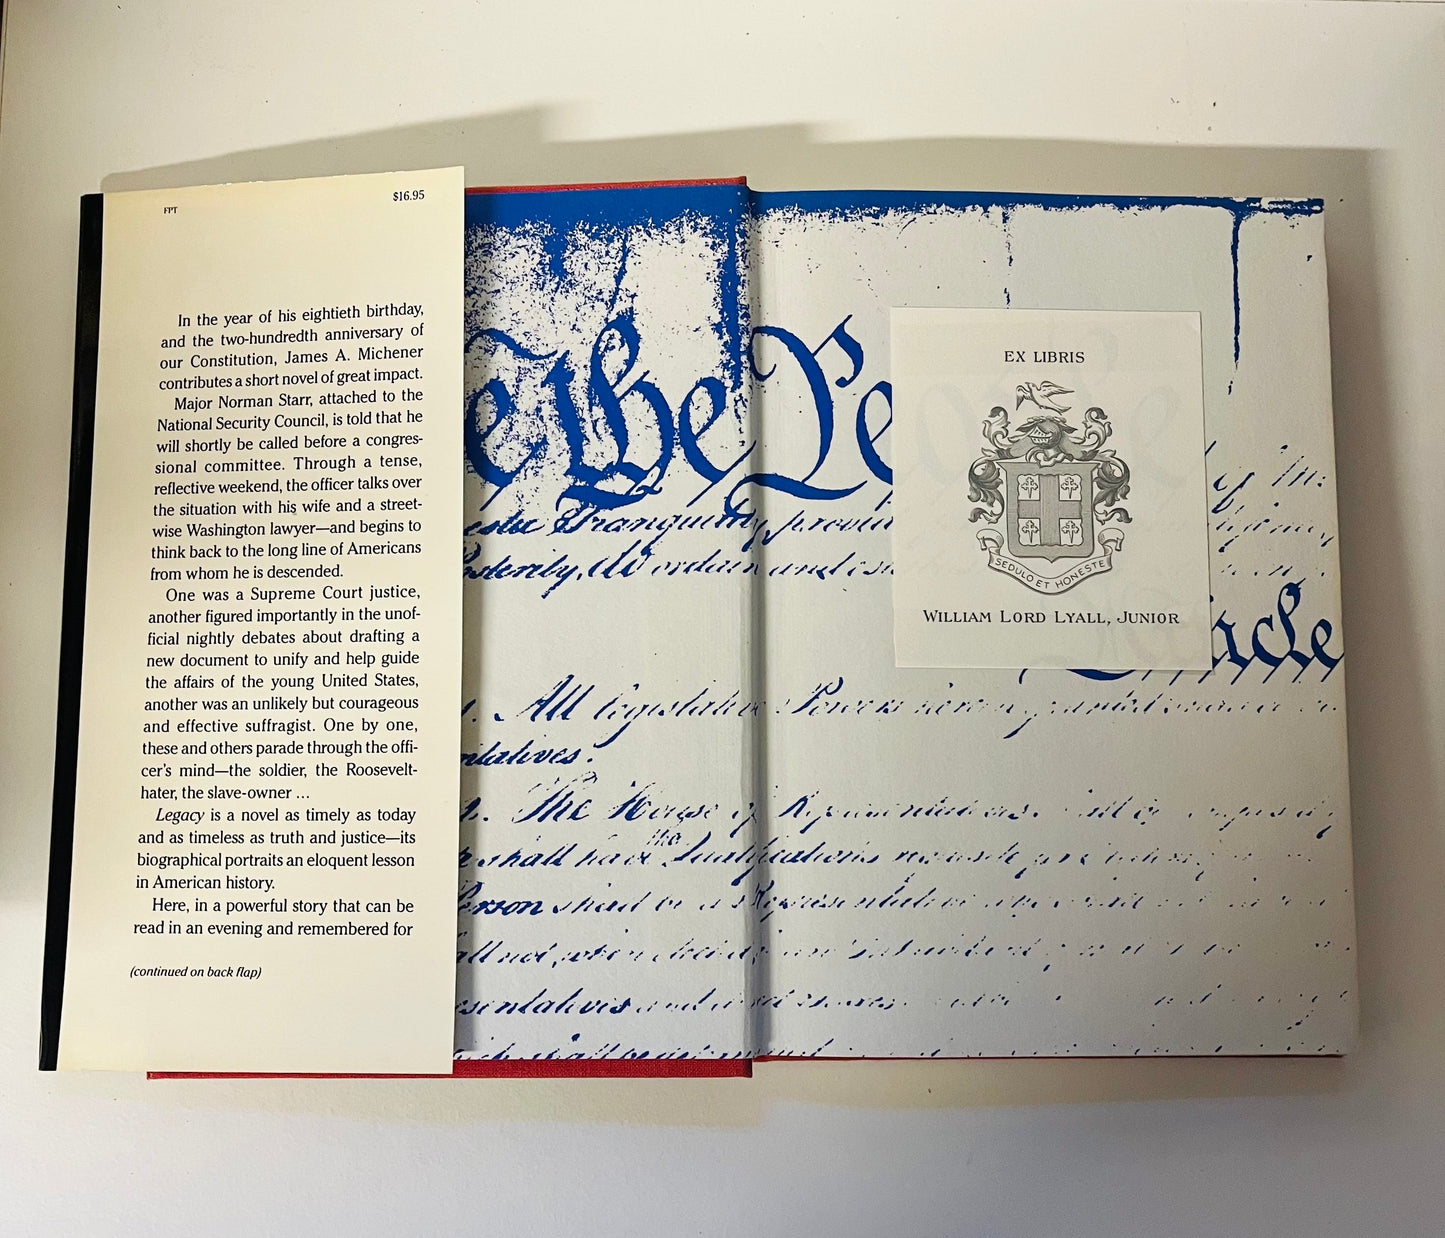 $16.95
FPT
In the year of his eightieth birthday,
and the two-hundredth anniversary of
our Constitution, James A. Michener
contributes a short novel of great impact.
Major Norman Starr, attached to the
National Security Council, is told that he
will shortly be called before a congres-
sional committee. Through a tense,
reflective weekend, the officer talks over
the situation with his wife and a street-
wise Washington lawyer—and begins to
think back to the long line of Americans
from whom he is descended.
One was a Supreme Court justice,
another figured importantly in the unof-
ficial nightly debates about drafting a
new document to unify and help guide
the affairs of the young United States,
another was an unlikely but courageous
and effective suffragist. One by one,
these and others parade through the offi-
cer's mind—the soldier, the Roosevelt-
hater, the slave-owner ...
Legacy is a novel as timely as today
and as timeless as truth and justice—its
biographical portraits an eloquent lesson
in American history.
Here, in a powerful story that can be
read in an evening and remembered for
(continued on back flap)
e the Pe
Tranquility, provid
osterity, do ordain and
All legislative Powers herein granted
ntatives.
The House of Representatives
the
shall have Qualifications
Person shall be a Representative
all not, when
esentatives and
shall be
EX LIBRIS
SEDULO ET HONESTE
WILLIAM LORD LYALL, JUNIOR
ticle